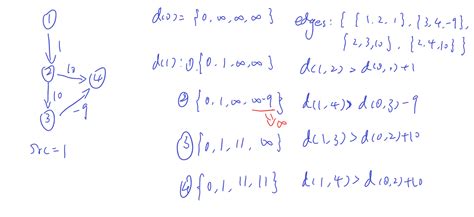 ①
1
②
10
④
10
③
-9
src=1
d(0)= {0, ∞, ∞, ∞}
edges: { {1, 2, 1}, {3, 4, -9},
{2, 3, 10}, {2, 4, 10}
d(1): ① {0, 1, ∞, ∞}
d(1, 2) > d(0, 1) + 1
② {0, 1, ∞, ∞-9}
d(1, 4) > d(0, 3) - 9
⇒ ∞
③ {0, 1, 11, ∞}
d(1, 3) > d(0, 2) + 10
④ {0, 1, 11, 11}
d(1, 4) > d(0, 2) + 10